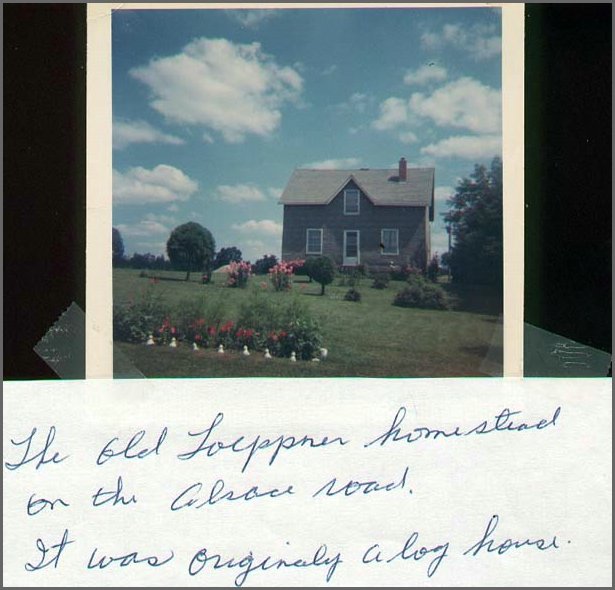 The old Toeppner homestead
on the Alsace road.
It was originaly a log house.